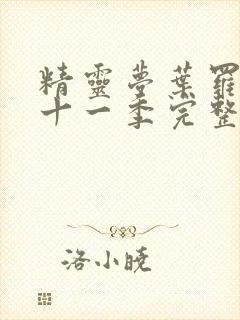 精靈夢葉羅
十一季完整
洛小曉